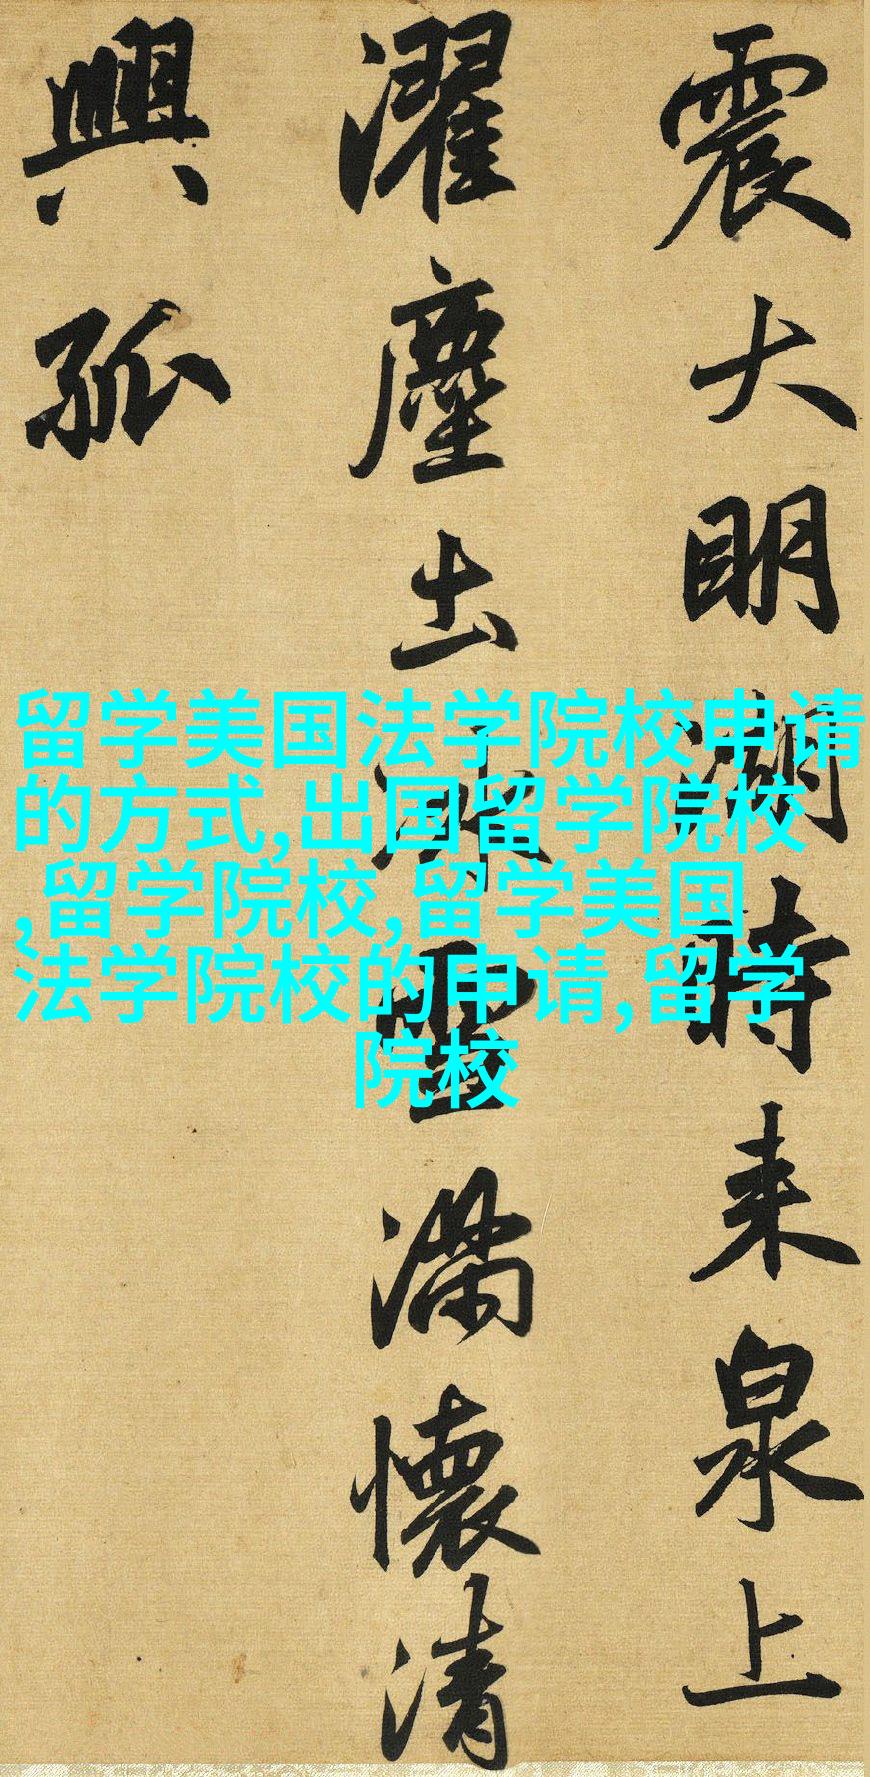 震大明湖時來泉上
濯塵土冰雪滿懷清
興孤
留学美国法学院校申请
的方式,出国留学院校
,留学院校,留学美国
法学院校的申请,留学
院校